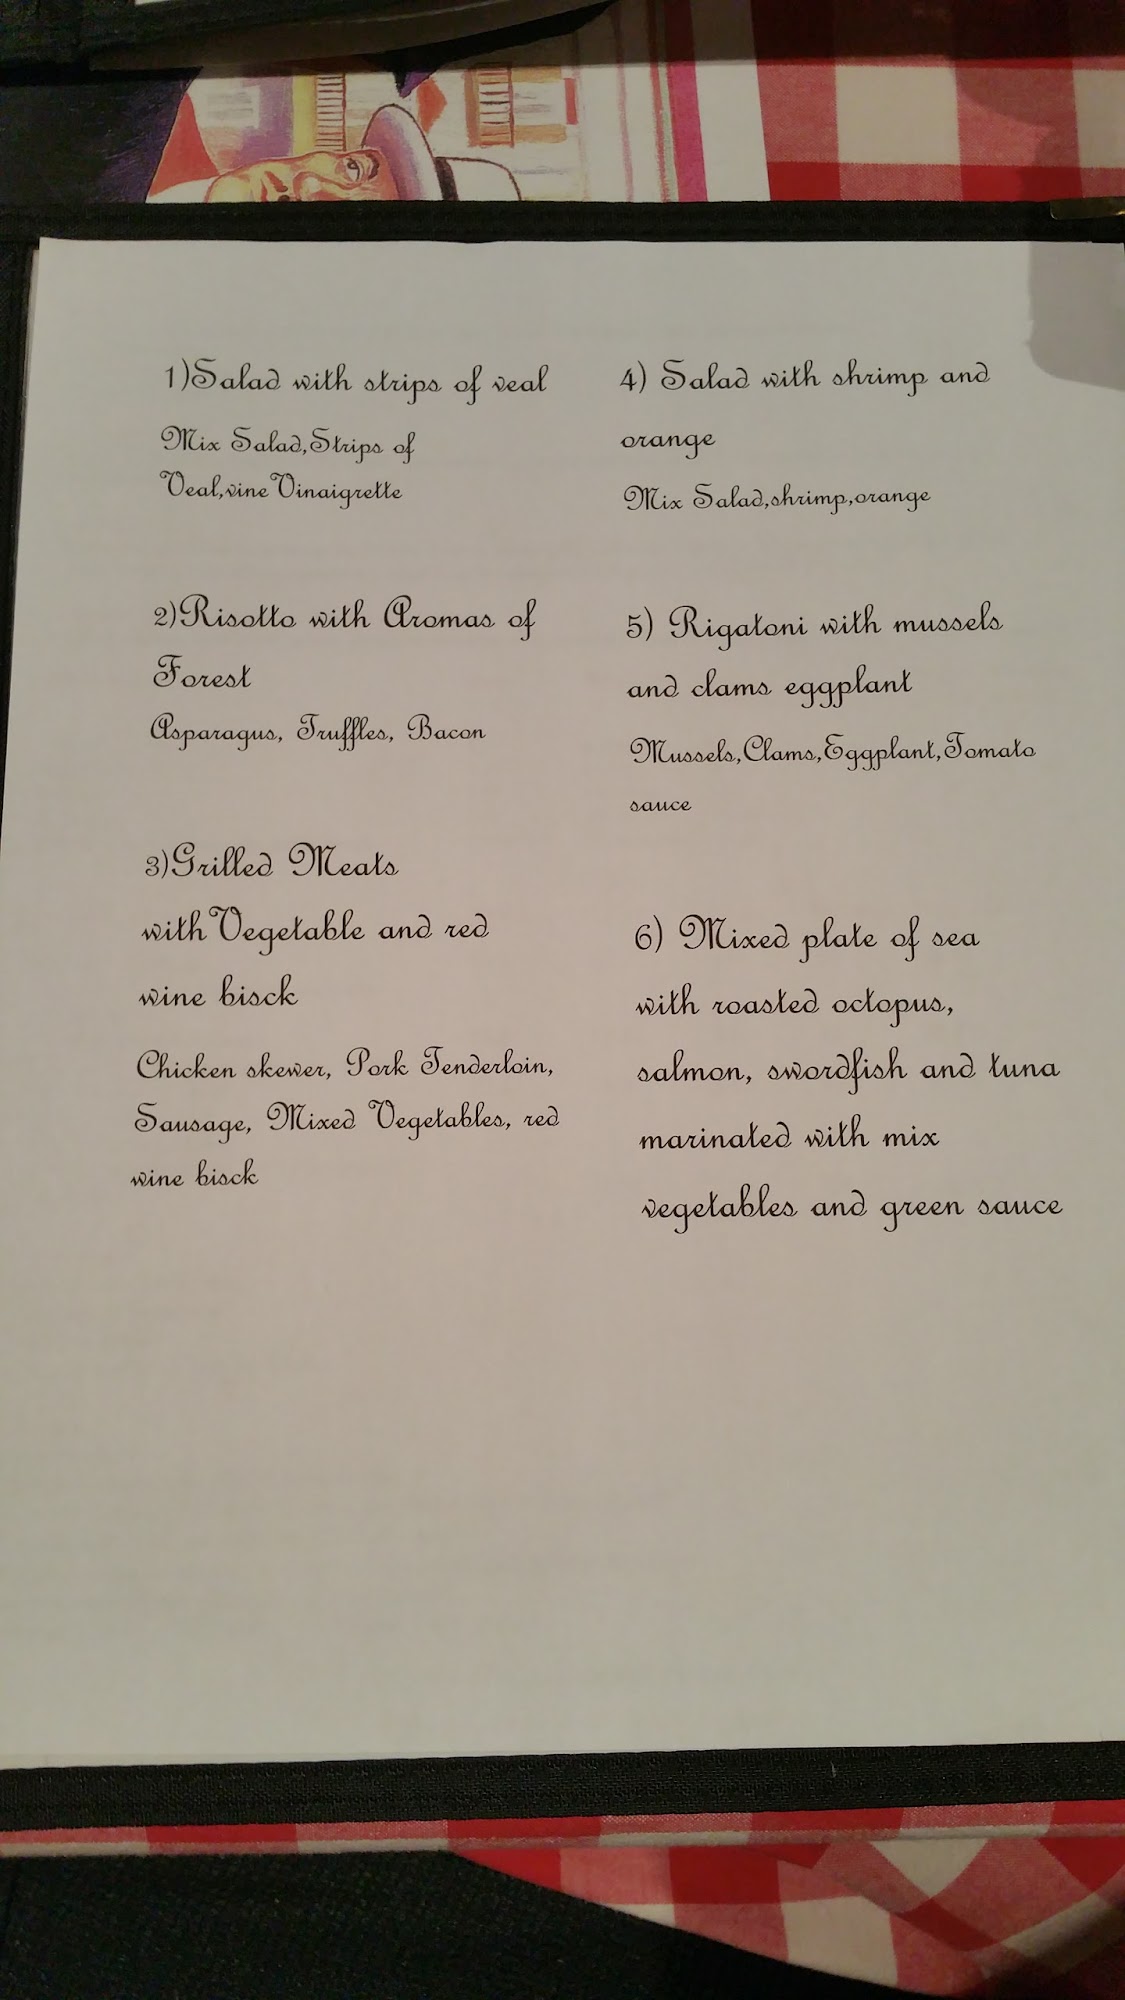 1)Salad with strips of veal
Mix Salad,Strips of
Veal,vine Vinaigrette
2)Risotto with Aromas of
Forest
Asparagus, Truffles, Bacon
3)Grilled Meats
with Vegetable and red
wine bisck
Chicken skewer, Pork Tenderloin,
Sausage, Mixed Vegetables, red
wine bisck
4) Salad with shrimp and
orange
Mix Salad,shrimp,orange
5) Rigatoni with mussels
and clams eggplant
Mussels,Clams,Eggplant,Tomato
sauce
6) Mixed plate of sea
with roasted octopus,
salmon, swordfish and tuna
marinated with mix
vegetables and green sauce